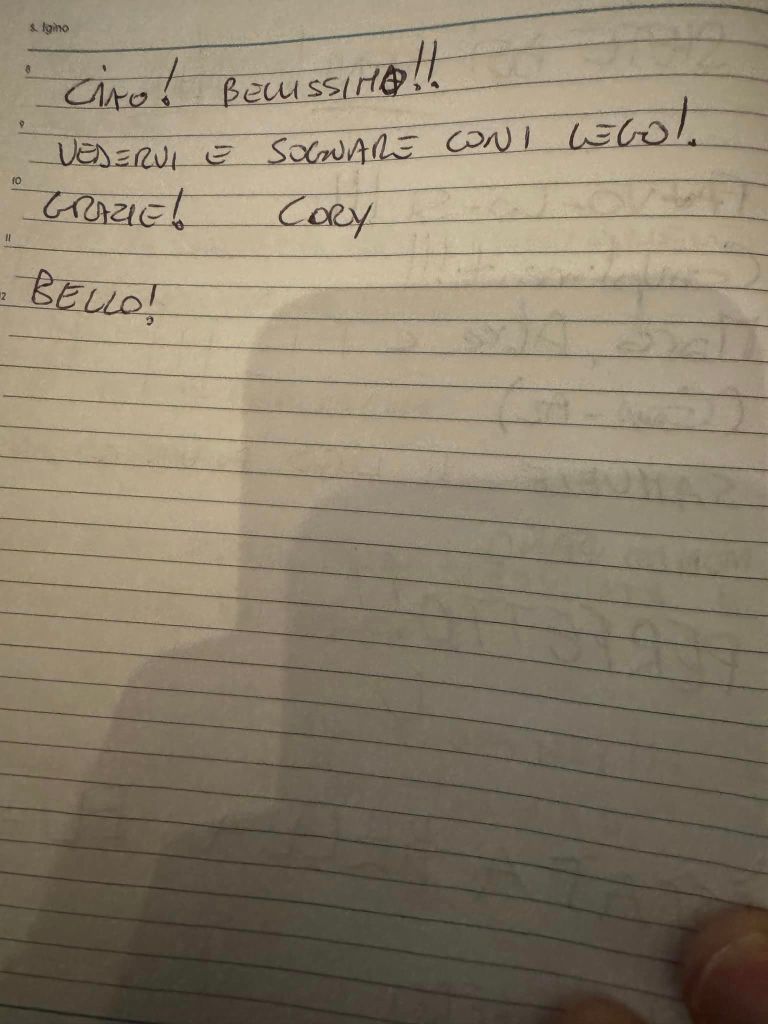 s. Igino
8
CIAO! BELLISSIMO!!
9
VEDERVI E SOGNARE CON I LEGO!.
10
GRAZIE! CORY
11
12
BELLO!